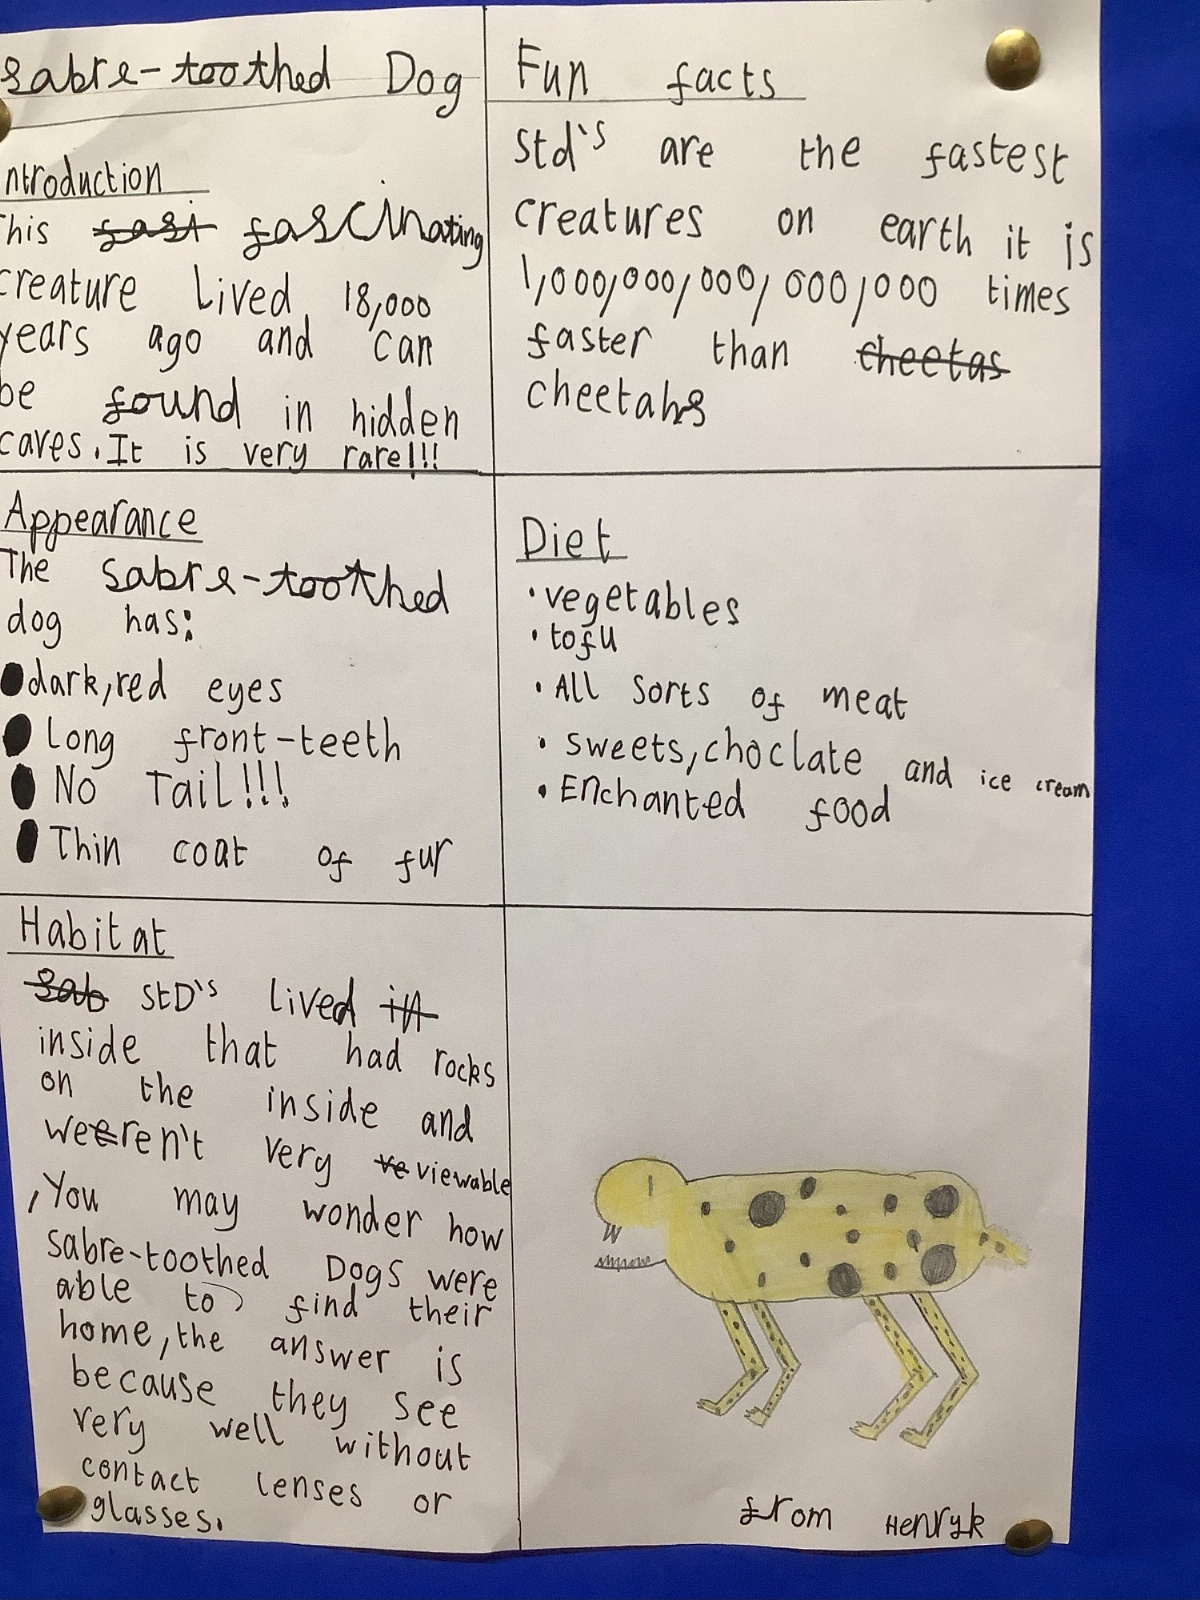 Sabre-toothed Dog
ntroduction
This fast fascinating
creature Lived 18,000
years ago and can
be found in hidden
caves. It is very rare!!!
Fun facts
Std's are the fastest
creatures on earth it is
1,000,000,000,000,000 times
faster than cheetas
cheetahs
Appearance
The Sabre-toothed
dog has:
dark, red eyes
Long front-teeth
No Tail!!!
Thin coat of fur
Diet
• vegetables
• tofu
• All Sorts of meat
• sweets, choclate and ice cream
• Enchanted food
Habitat
Sab StD's lived in
inside that had rocks
on the inside and
weeren't very ve viewable
, You may wonder how
sabre-toothed Dogs were
able to find their
home, the answer is
because they see
very well without
contact lenses or
glasses.
from Henryk